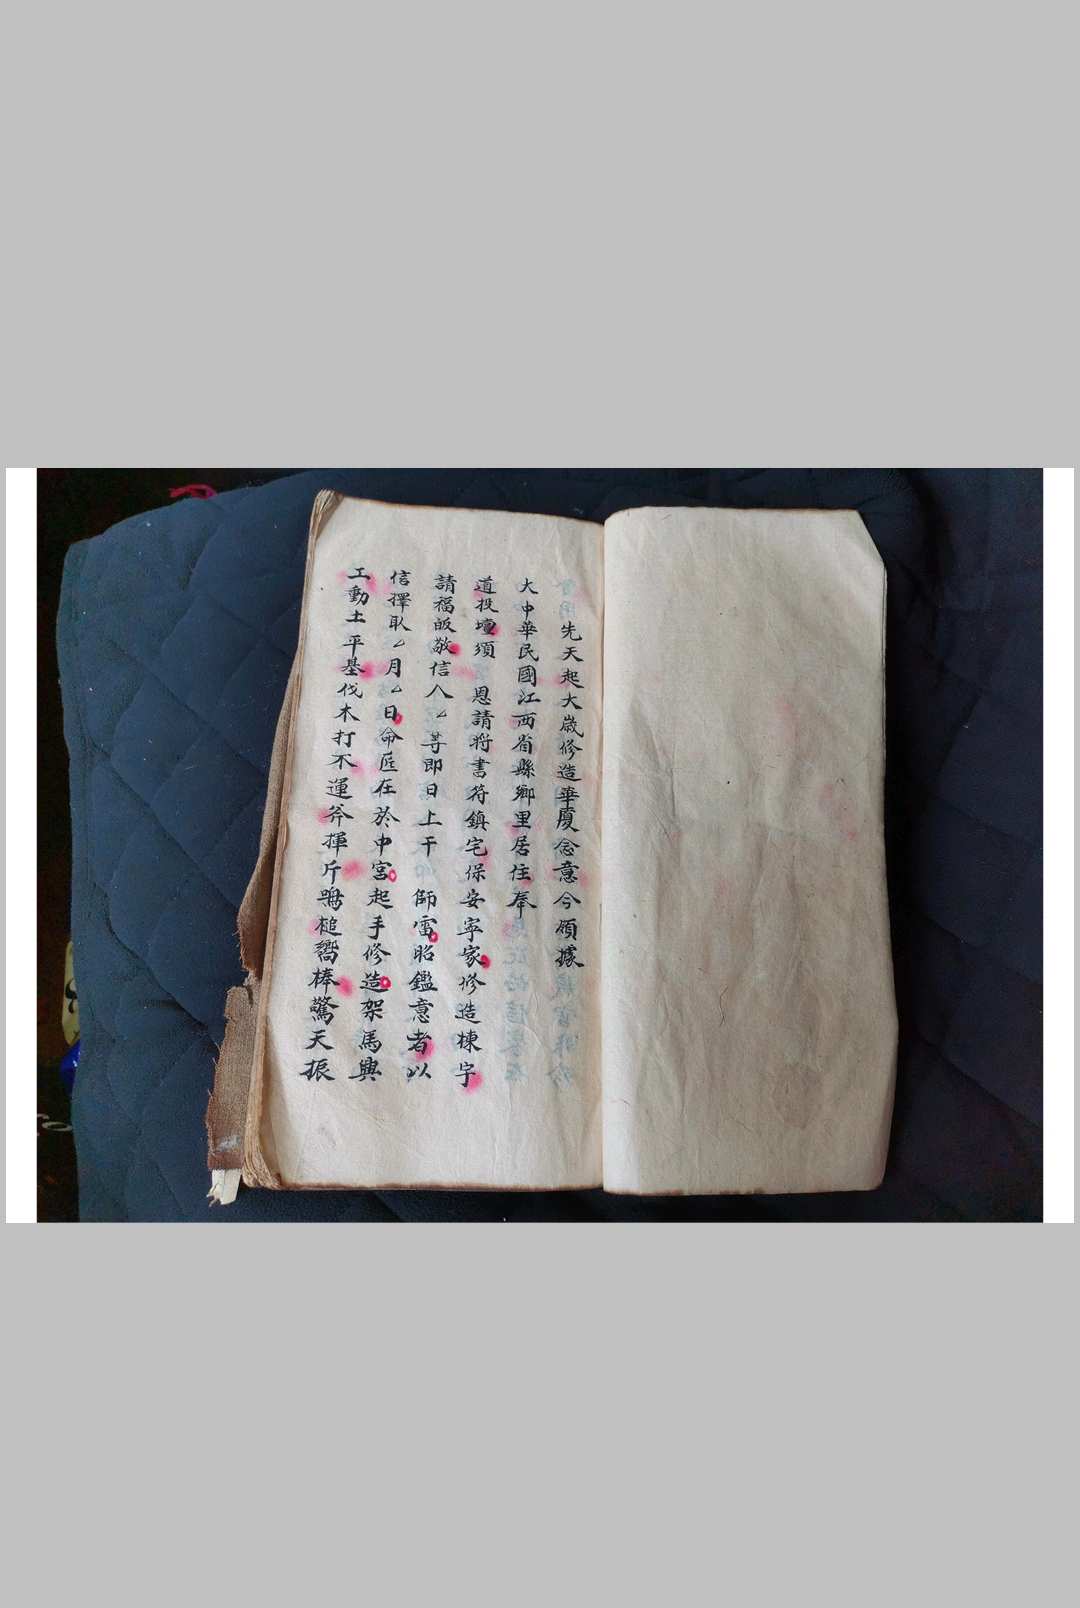 先天起大歲修造華廈念意今領據
大中華民國江西省縣鄉里居住奉
道投壇須 恩請將書符鎮宅保安寧家修造棟宇
請福皈敬信人ム等即日上干 師雷昭鑑意者以
信擇取ム月ム日命匠在於中宮起手修造架馬興
工動土平基伐木打不運斧揮斤鳴槌嚮棒驚天振